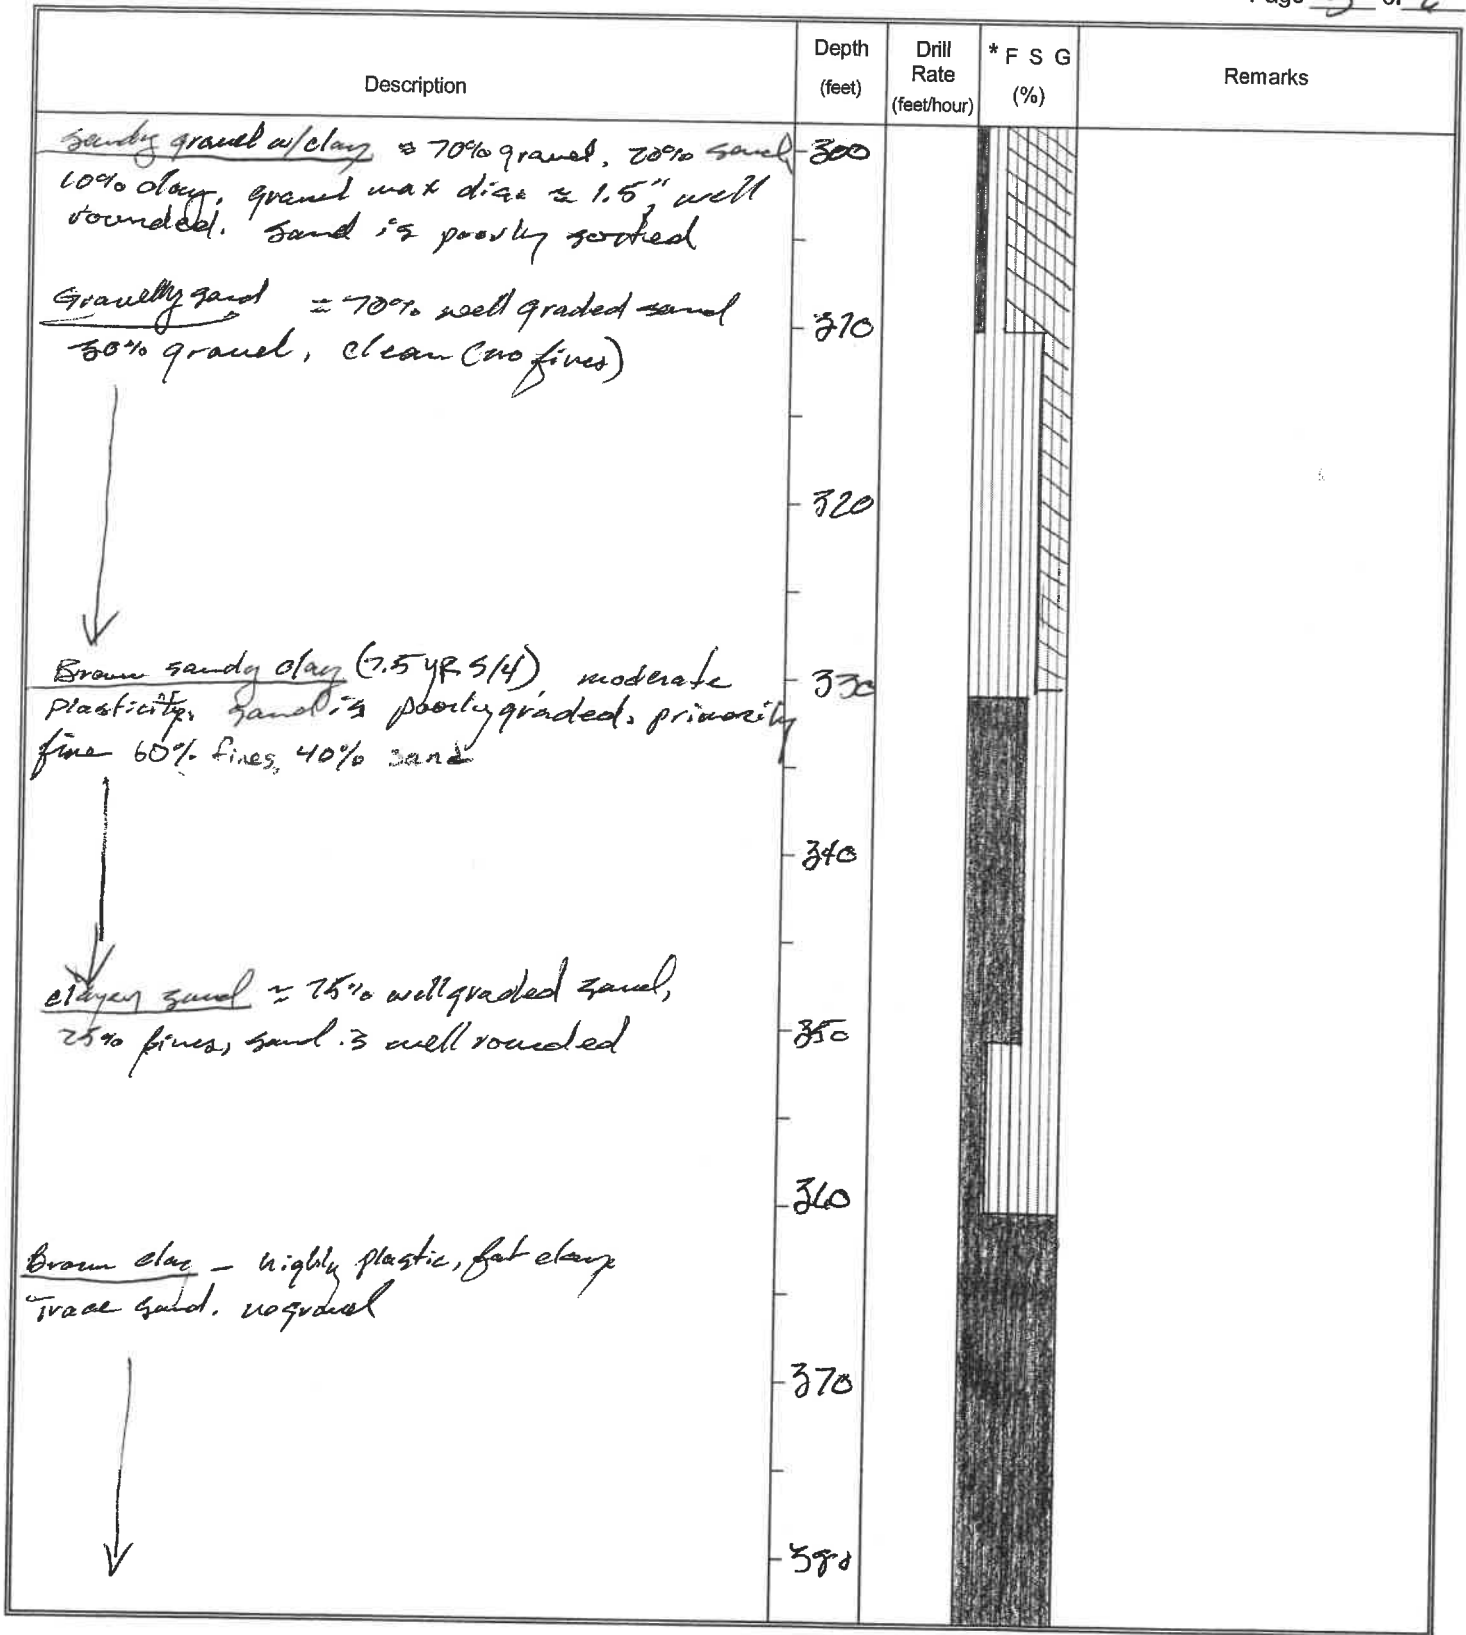 Page 5 of
Description
Depth
(feet)
Drill
Rate
(feet/hour)
* F S G
(%)
Remarks
Sandy gravel w/clay ≈ 70% gravel, 20% sand,
10% clay, gravel max dia. ≈ 1.5", well
rounded. Sand is poorly sorted
Gravelly sand ≈ 70% well graded sand
30% gravel, clean (no fines)
Brown sandy clay (7.5 YR 5/4), moderate
plasticity, sand is poorly graded, primarily
fine 60% fines, 40% sand
clayey sand ≈ 75% well graded sand,
25% fines, sand is well rounded
Brown clay – highly plastic, fat clay
Trace sand. no gravel
300
310
320
330
340
350
360
370
380